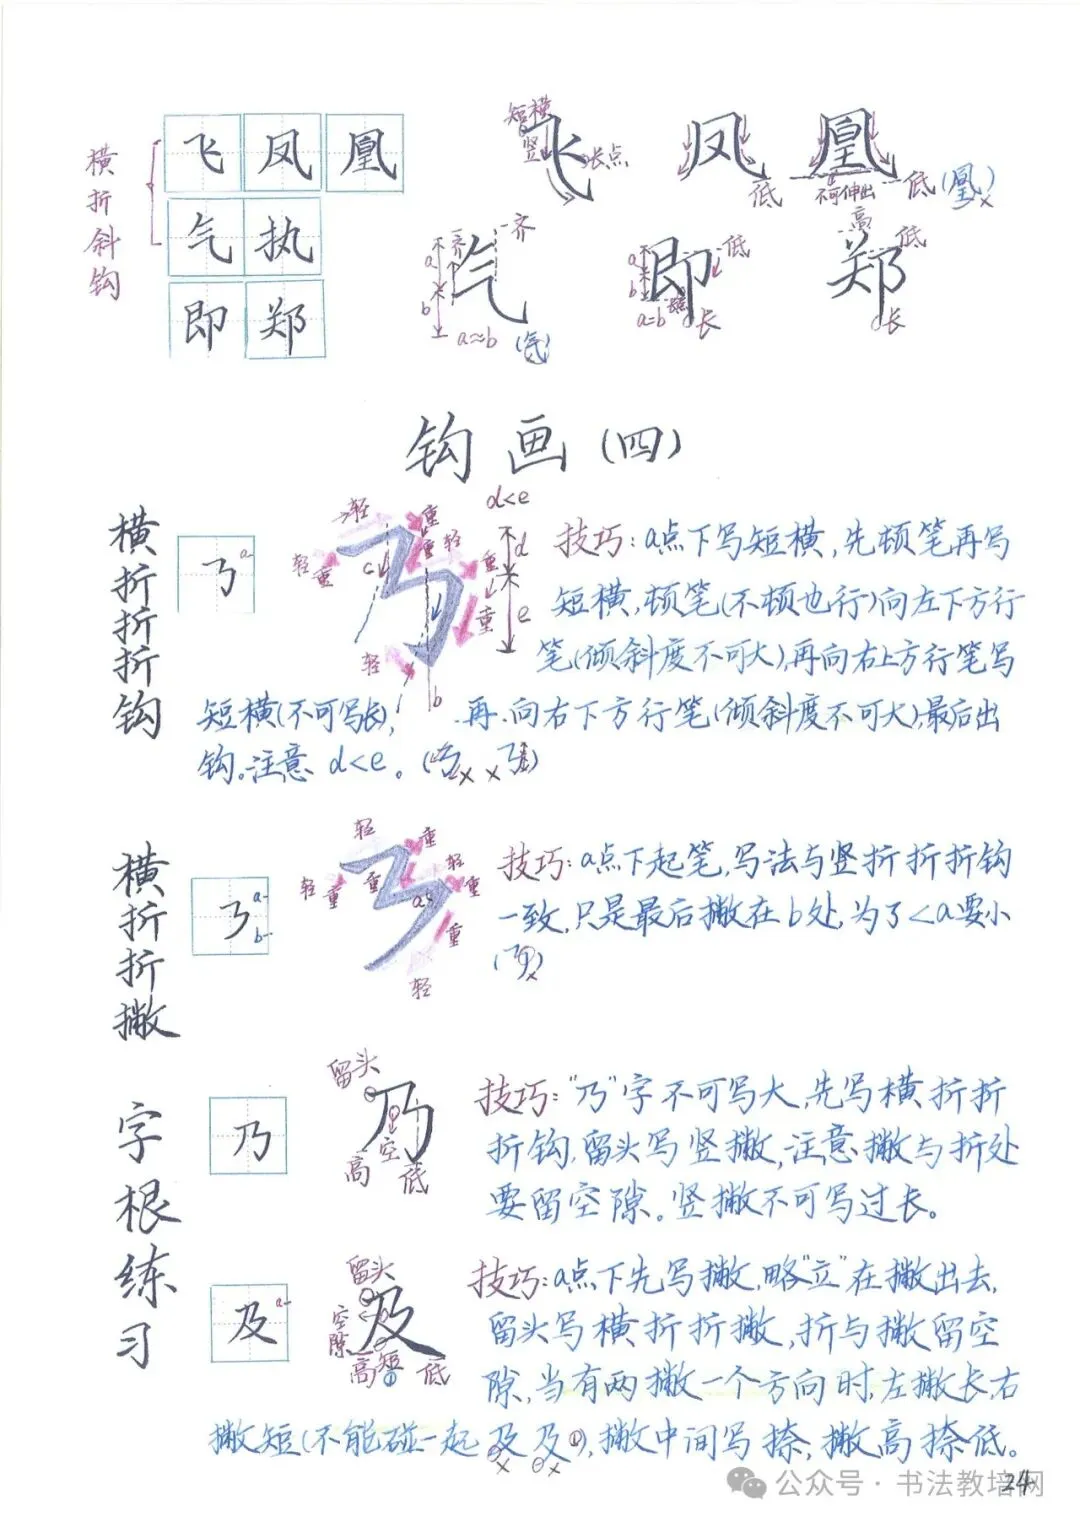 横折斜钩
飞 凤 凰
气 执
即 郑
短横
竖
飞
长点
凤
低
凰
不可伸出
低
(凰)×
齐
齐
a
b
气
a≈b
(气)
a
b
即
低
a=b
短
长
高
低
郑
长
钩画(四)
横折折折钩
a
轻
重
重
轻
轻
重
c
重
重
轻
b
d<e
d
e
技巧:a点下写短横,先顿笔再写
短横,顿笔(不顿也行)向左下方行
笔(倾斜度不可大),再向右上方行笔写
短横(不可写长), 再向右下方行笔(倾斜度不可大),最后出
钩。注意 d<e。
横折折撇
a
b
轻
重
轻
重
重
轻
重
a
重
轻
技巧:a点下起笔,写法与竖折折折钩
一致,只是最后撇在b处,为了<a要小
字根练习
乃
留头
乃
空
高
低
技巧:"乃"字不可写大,先写横折折
折钩,留头写竖撇,注意撇与折处
要留空隙。竖撇不可写过长。
及
a
留头
及
空隙
高
短
低
技巧:a点下先写撇,略"立"在撇出去,
留头写横折折撇,折与撇留空
隙,当有两撇一个方向时,左撇长,右
撇短(不能碰一起 及× 及×),撇中间写捺,撇高捺低。
公众号·书法教培网
24